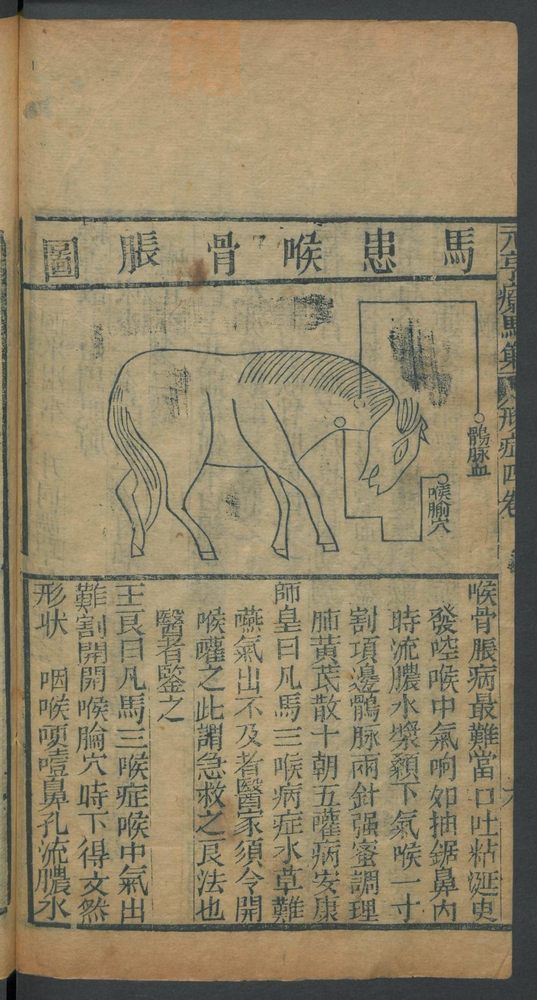 馬患喉骨脹圖
元亨療馬集
形症四卷
鶻脉血
喉腧穴
喉骨脹病最難當口吐粘涎更
發嗌喉中氣响如抽鋸鼻内
時流膿水漿顙下氣喉一寸
割項邊鶻脉兩針强蜜調理
肺黃茋散十朝五嚾病安康
師皇曰凡馬三喉病症水草難
嚥氣出不及者醫家須令開
喉嚾之此謂急救之良法也
醫者鑒之
王良曰凡馬三喉症喉中氣出
難割開開喉腧穴時下得安然
形状 咽喉哽噎鼻孔流膿水